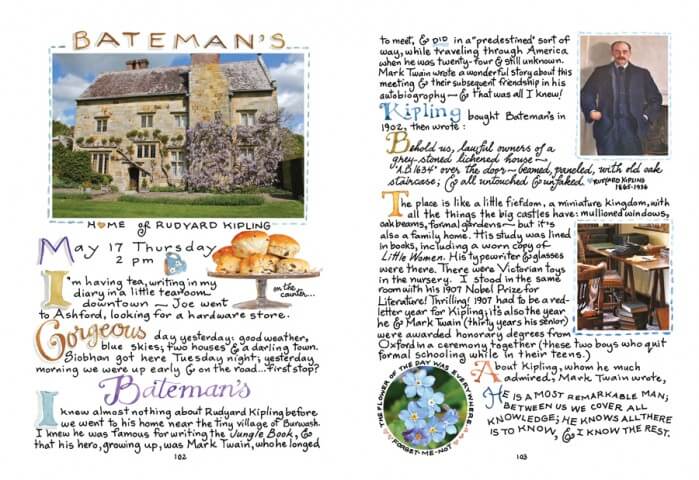 BATEMAN'S
HOME of RUDYARD KIPLING
May 17 Thursday
2 pm
I'm having tea, writing in my
diary in a little tearoom
downtown ~ Joe went
to Ashford, looking for a hardware store.
on the
counter...
Gorgeous day yesterday: good weather,
blue skies; two houses & a darling town.
Siobhan got here Tuesday night; yesterday
morning we were up early & on the road... First stop?
Bateman's
I knew almost nothing about Rudyard Kipling before
we went to his home near the tiny village of Burwash.
I knew he was famous for writing the Jungle Book, &
that his hero, growing up, was Mark Twain, who he longed
102
to meet, & DID in a "predestined" sort of
way, while traveling through America
when he was twenty-four & still unknown.
Mark Twain wrote a wonderful story about this
meeting & their subsequent friendship in his
autobiography ~ & that was all I knew!
Kipling bought Bateman's in
1902, then wrote:
Behold us, lawful owners of a
grey-stoned lichened house ~
"A.D. 1634" over the door ~ beamed, paneled, with old oak
staircase; & all untouched & unfaked. RUDYARD KIPLING
1865-1936
The place is like a little fiefdom, a miniature kingdom, with
all the things the big castles have: mullioned windows,
oak beams, formal gardens ~ but it's
also a family home. His study was lined
in books, including a worn copy of
Little Women. His typewriter & glasses
were there. There were Victorian toys
in the nursery. I stood in the same
room with his 1907 Nobel Prize for
Literature! Thrilling! 1907 had to be a red-
letter year for Kipling; it's also the year
he & Mark Twain (thirty years his senior)
were awarded honorary degrees from
Oxford in a ceremony together (these two boys who quit
formal schooling while in their teens.)
THE FLOWER OF THE DAY WAS EVERYWHERE
FORGET-ME-NOT
About Kipling, whom he much
admired, Mark Twain wrote,
HE IS A MOST REMARKABLE MAN;
BETWEEN US WE COVER ALL
KNOWLEDGE; HE KNOWS ALL THERE
IS TO KNOW, & I KNOW THE REST.
103